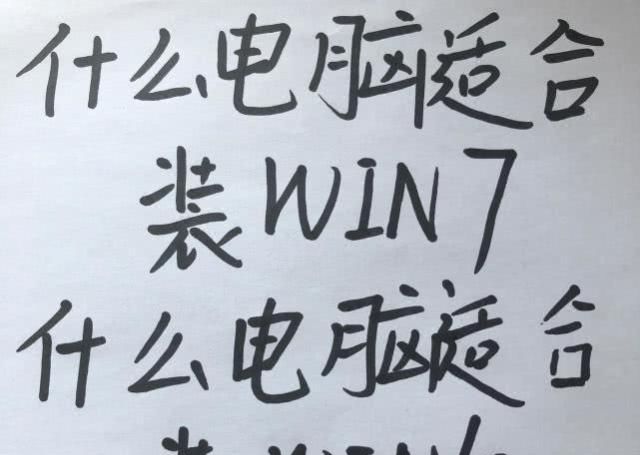 什么电脑适合
装WIN7
什么电脑适合